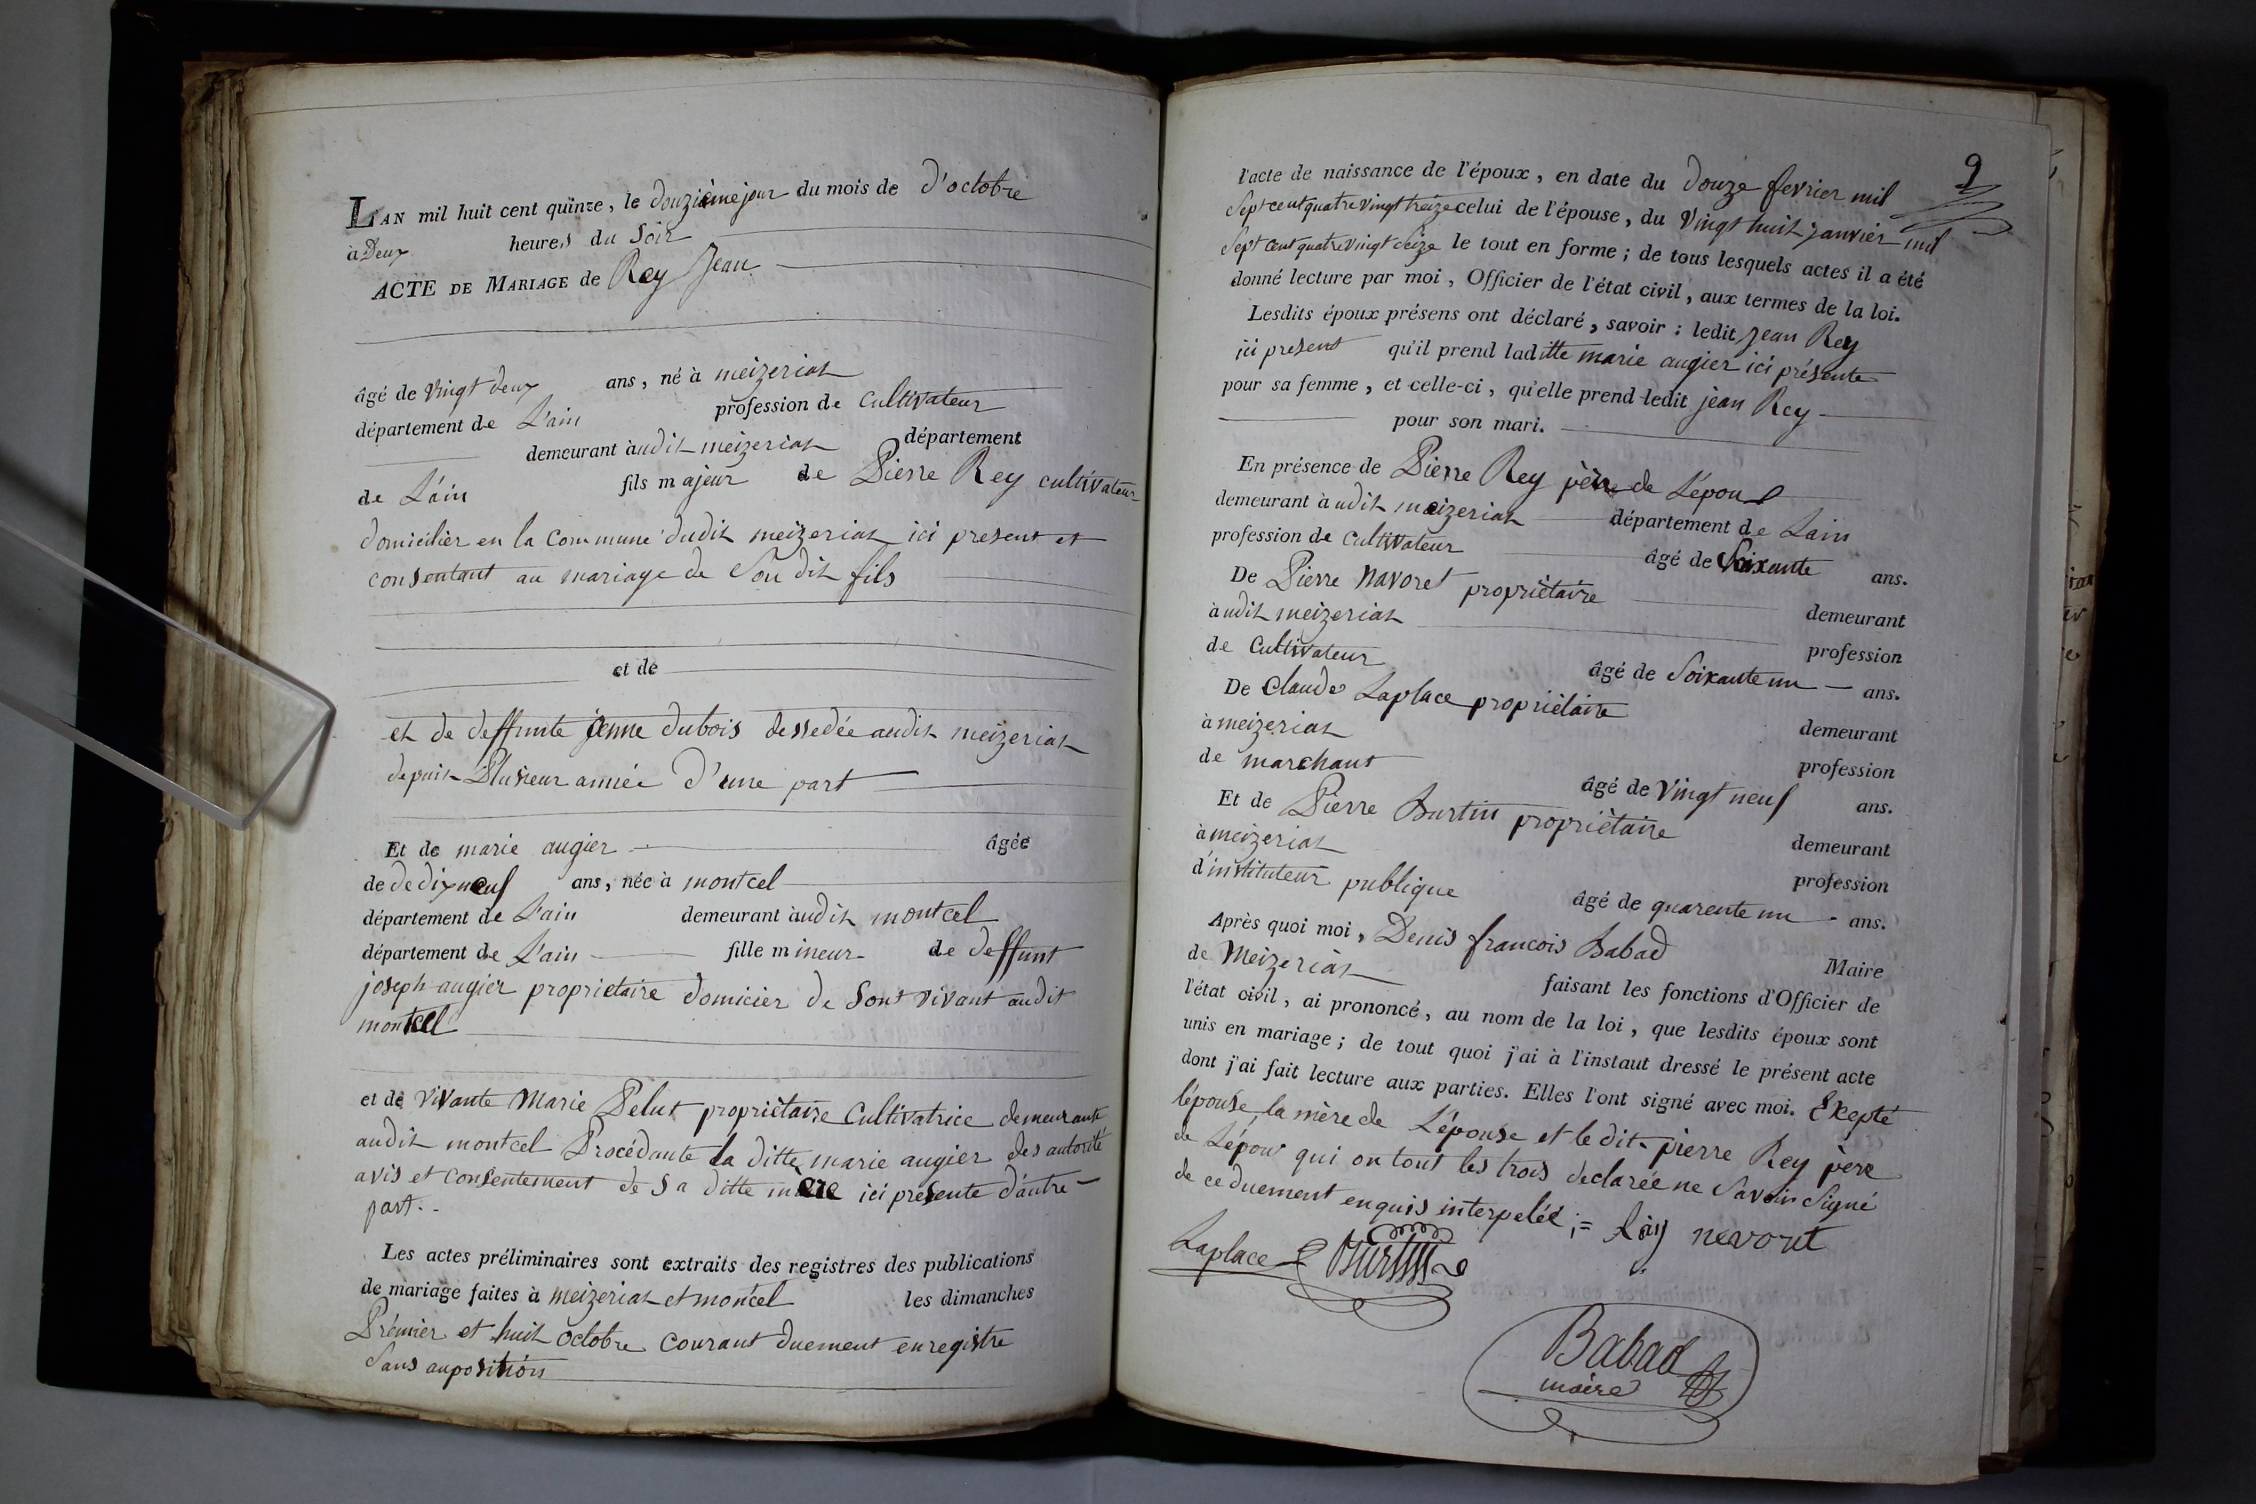 LAN mil huit cent quinze, le douzième jour du mois de d'octobre
à Deux heures du Soir
ACTE DE MARIAGE de Rey Jean
âgé de vingt deux ans, né à meizeriat
département de L'ain profession de cultivateur
demeurant àudit meizeriat département
de L'ain fils majeur de Pierre Rey cultivateur
domicilier en la commune dudit meizeriat ici present et
consentant au mariage de Son dit fils
et de
et de deffunte jenne dubois dessedée audit meizeriat
depuis Plusieur année d'une part
Et de marie augier âgée
de de dix neuf ans, née à montcel
département de L'ain demeurant àudit montcel
département de L'ain fille mineur de deffunt
joseph augier proprietaire domicier de Sont vivant audit
montcel
et de vivante Marie Pelut propriètaire Cultivatrice demeurante
audit montcel Procédante la ditte marie augier des autorité
avis et consentement de Sa ditte mere ici présente d'autre
part.
Les actes préliminaires sont extraits des registres des publications
de mariage faites à meizeriat et montcel les dimanches
Prémier et huit octobre courant duement enregistre
Sans auposition
9
l'acte de naissance de l'époux, en date du douze fevrier mil
Sept cent quatre vingt treize celui de l'épouse, du vingt huit janvier mil
Sept cent quatre vingt Seize le tout en forme; de tous lesquels actes il a été
donné lecture par moi, Officier de l'état civil, aux termes de la loi.
Lesdits époux présens ont déclaré, savoir: ledit Jean Rey
ici present qu'il prend laditte marie augier ici présente
pour sa femme, et celle-ci, qu'elle prend ledit jean Rey
pour son mari.
En présence de Pierre Rey père de L'épou
demeurant à udit meizeriat département de Lain
profession de cultivateur âgé de Soixante ans.
De Pierre Navoret propriètaire demeurant
àudit meizeriat profession
de Cultivateur âgé de Soixante un ans.
De Claude Laplace propriètaire demeurant
à meizeriat profession
de marchant âgé de vingt neuf ans.
Et de Pierre Burtin propriètaire demeurant
à meizeriat profession
d'instituteur publique âgé de quarente un ans.
Après quoi moi, Denis francois Babad Maire
de Meizeriàt faisant les fonctions d'Officier de
l'état civil, ai prononcé, au nom de la loi, que lesdits époux sont
unis en mariage; de tout quoi j'ai à l'instaut dressé le présent acte
dont j'ai fait lecture aux parties. Elles l'ont signé avec moi. Exepté
l'épouse, la mère de L'épouse et le dit pierre Rey père
de L'épou qui on tout les trois declarée ne Savoir Signé
de ce duement enquis interpelée ;= Ray nevorit
Laplace Burtin
Babad
maire